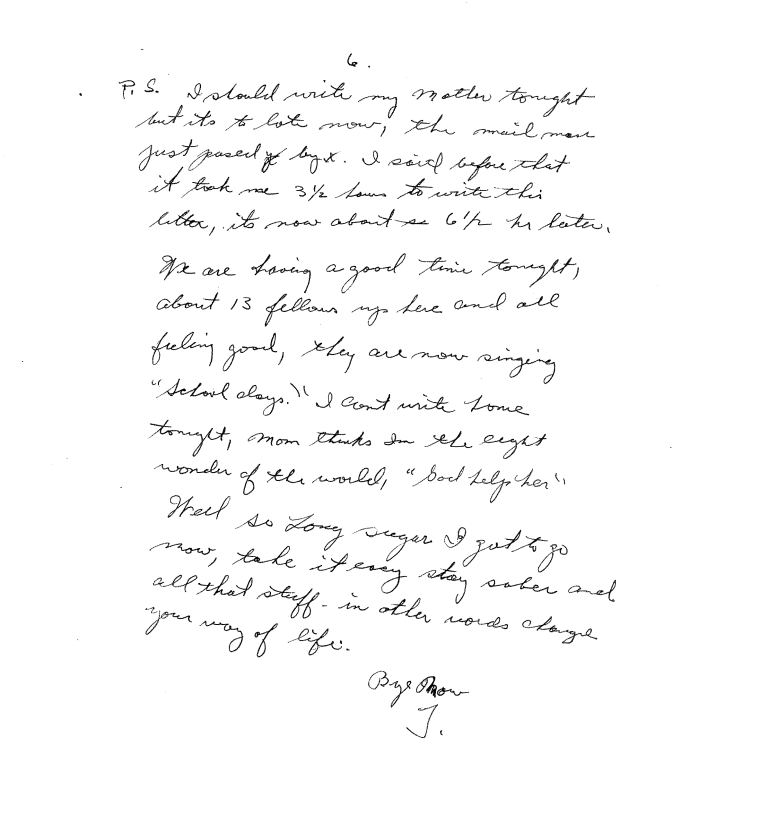 6.
P.S. I should write my Mother tonight
but its to late now, the mail man
just passed by x. I said before that
it took me 3 1/2 hours to write this
letter, its now about 6 1/2 hr later.
We are having a good time tonight,
about 13 fellows up here and all
feeling good, they are now singing
"School days." I cant write home
tonight, mom thinks Im the eight
wonder of the world, "God help her"
Well so Long sugar I got to go
now, take it easy stay sober and
all that stuff - in other words change
your way of life.
Bye Now
J.